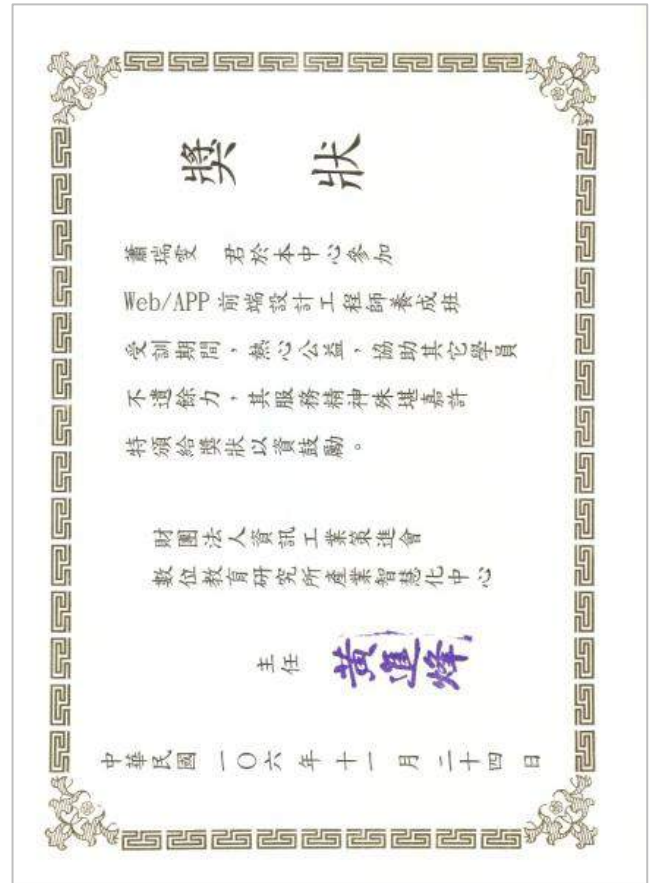 獎狀
蕭瑞雯 君於本中心參加
Web/APP 前端設計工程師養成班
受訓期間，熱心公益，協助其它學員
不遺餘力，其服務精神殊堪嘉許
特頒給獎狀以資鼓勵。
財團法人資訊工業策進會
數位教育研究所產業智慧化中心
主任 黃進烽
中華民國 一〇六 年 十一 月 二十四 日